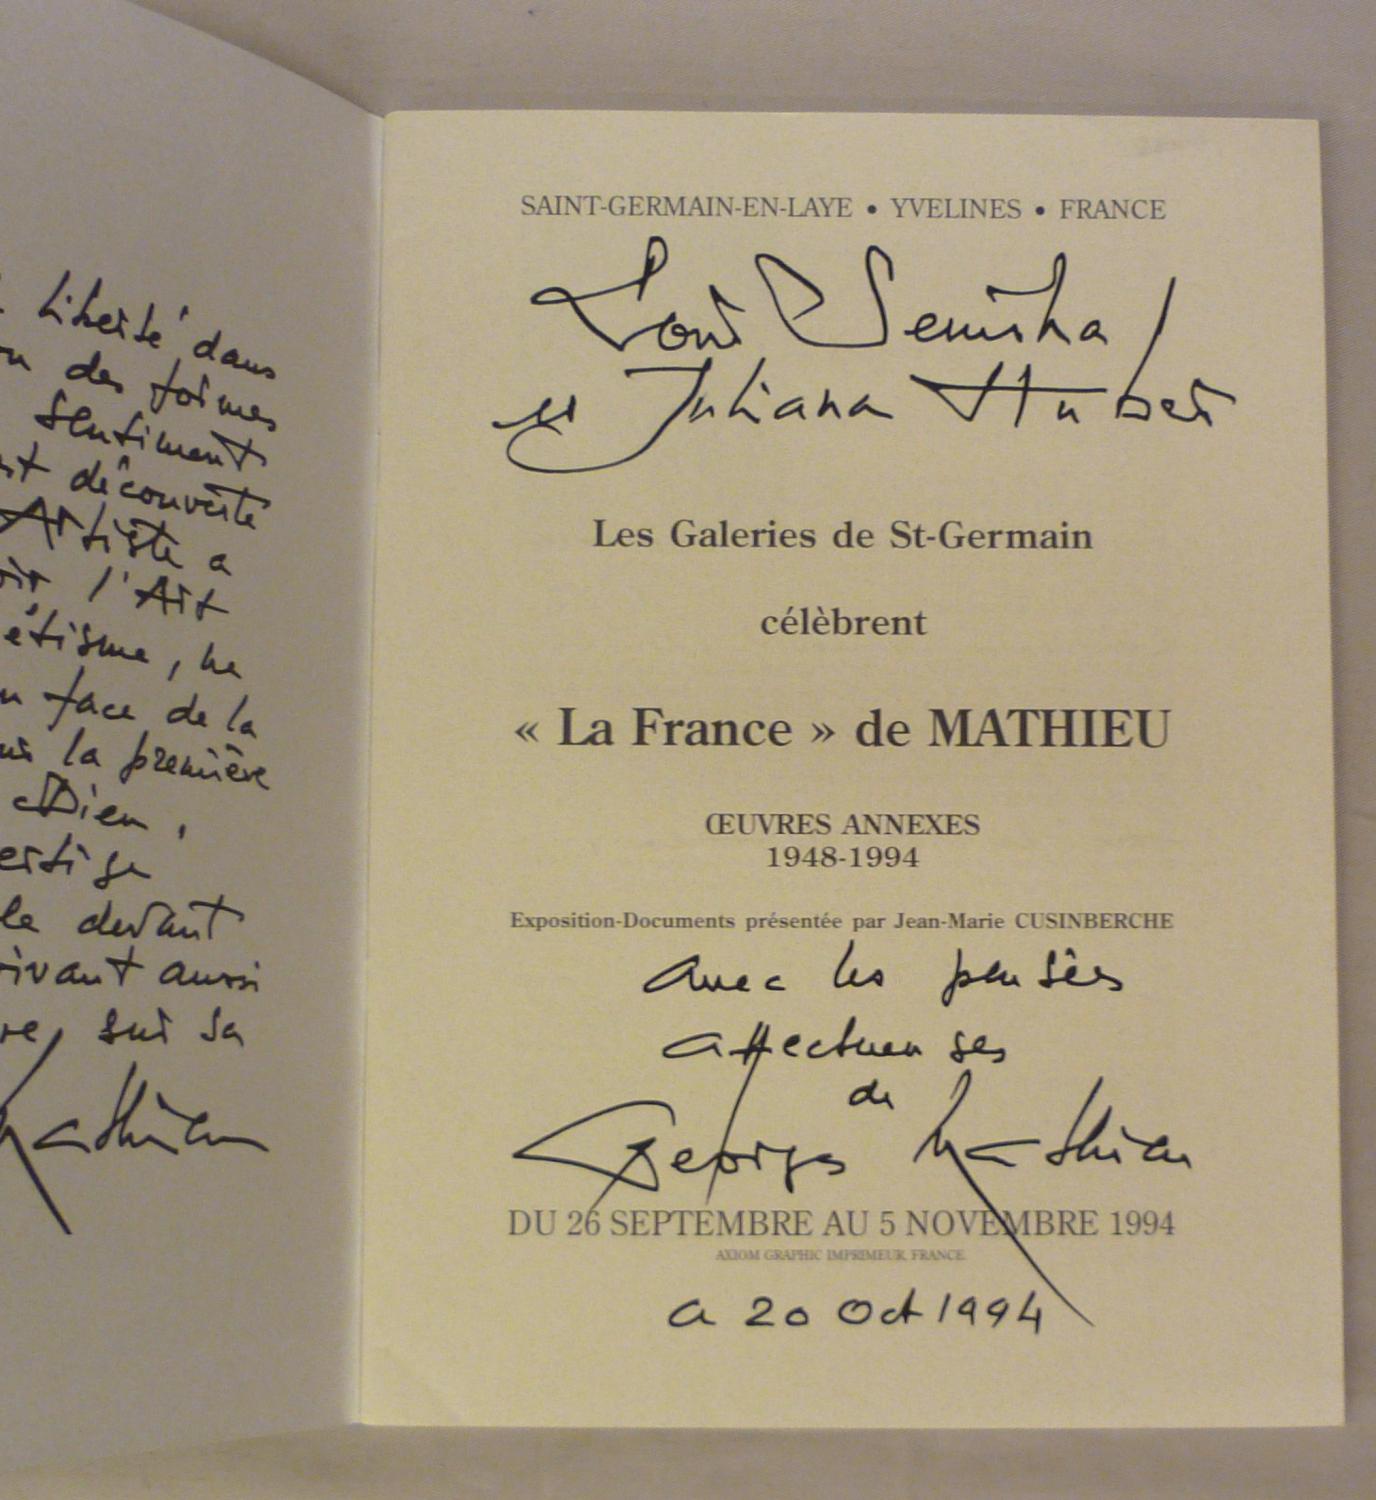 liberté dans
des formes
sentiment
découverte
Artiste a
l'Art
étisme, ne
face de la
la première
Dieu,
le devant
aussi
sur sa
Mathieu
SAINT-GERMAIN-EN-LAYE • YVELINES • FRANCE
Pour Semiha
et Juliana Huber
Les Galeries de St-Germain
célèbrent
« La France » de MATHIEU
ŒUVRES ANNEXES
1948-1994
Exposition-Documents présentée par Jean-Marie CUSINBERCHE
avec les pensées
affectueuses
de
Georges Mathieu
DU 26 SEPTEMBRE AU 5 NOVEMBRE 1994
AXIOM GRAPHIC IMPRIMEUR FRANCE
a 20 Oct 1994